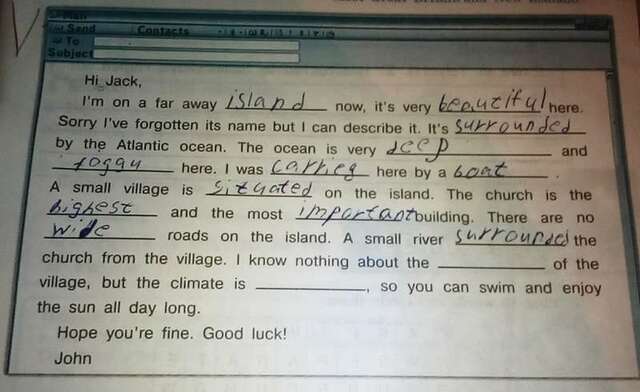 Mail
Send Contacts
To
Subject
Hi Jack,
I'm on a far away island now, it's very beautiful here.
Sorry I've forgotten its name but I can describe it. It's surrounded
by the Atlantic ocean. The ocean is very deep and
foggy here. I was carried here by a boat.
A small village is situated on the island. The church is the
highest and the most important building. There are no
wide roads on the island. A small river surrounded the
church from the village. I know nothing about the ____________ of the
village, but the climate is ____________, so you can swim and enjoy
the sun all day long.
Hope you're fine. Good luck!
John